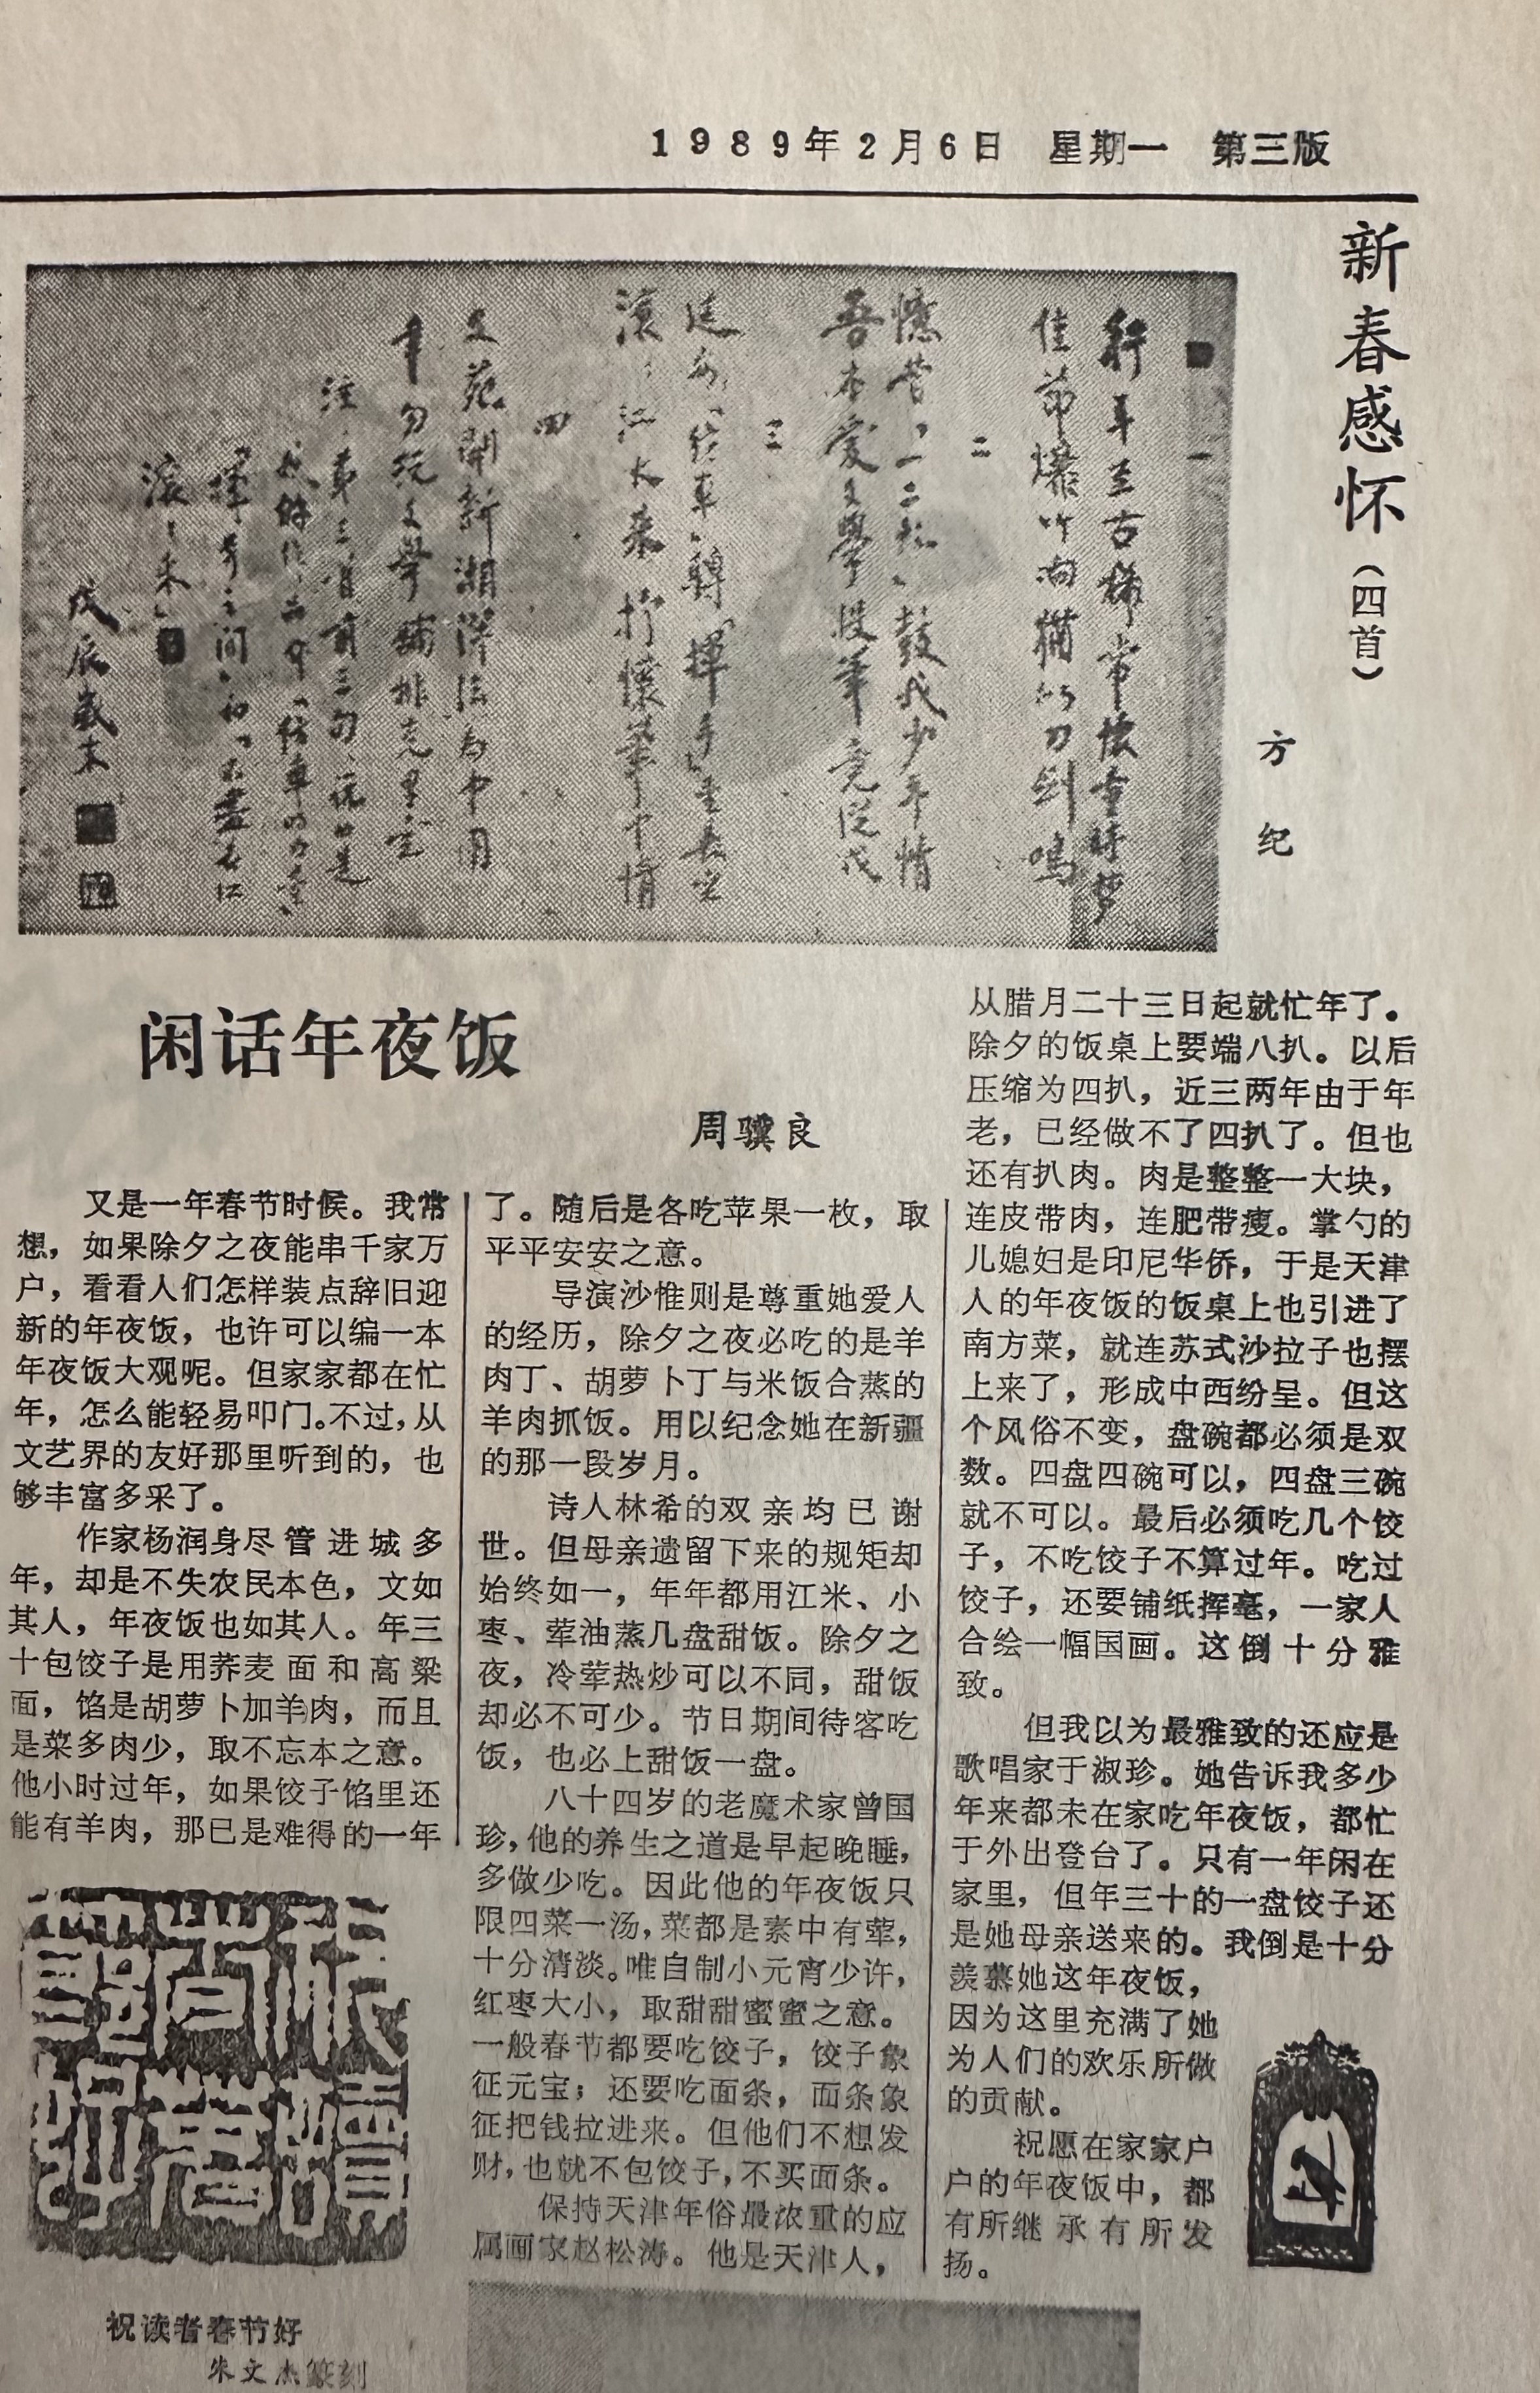 1989年2月6日　星期一　第三版
新春感怀（四首）
方纪
一
行年至古稀常怀童时梦
佳节爆竹响犹似刀剑鸣
二
忆昔一二·九鼓我少年情
吾本爱文学投笔竟从戎
三
滚滚江大来抒怀笔中情
四
文苑开新湖深
年勿玩文学铺排
戊辰岁末
闲话年夜饭
周骥良
又是一年春节时候。我常
想，如果除夕之夜能串千家万
户，看看人们怎样装点辞旧迎
新的年夜饭，也许可以编一本
年夜饭大观呢。但家家都在忙
年，怎么能轻易叩门。不过，从
文艺界的友好那里听到的，也
够丰富多采了。
作家杨润身尽管进城多
年，却是不失农民本色，文如
其人，年夜饭也如其人。年三
十包饺子是用荞麦面和高粱
面，馅是胡萝卜加羊肉，而且
是菜多肉少，取不忘本之意。
他小时过年，如果饺子馅里还
能有羊肉，那已是难得的一年
了。随后是各吃苹果一枚，取
平平安安之意。
导演沙惟则是尊重她爱人
的经历，除夕之夜必吃的是羊
肉丁、胡萝卜丁与米饭合蒸的
羊肉抓饭。用以纪念她在新疆
的那一段岁月。
诗人林希的双亲均已谢
世。但母亲遗留下来的规矩却
始终如一，年年都用江米、小
枣、荤油蒸几盘甜饭。除夕之
夜，冷荤热炒可以不同，甜饭
却必不可少。节日期间待客吃
饭，也必上甜饭一盘。
八十四岁的老魔术家曾国
珍，他的养生之道是早起晚睡，
多做少吃。因此他的年夜饭只
限四菜一汤，菜都是素中有荤，
十分清淡。唯自制小元宵少许，
红枣大小，取甜甜蜜蜜之意。
一般春节都要吃饺子，饺子象
征元宝；还要吃面条，面条象
征把钱拉进来。但他们不想发
财，也就不包饺子，不买面条。
保持天津年俗最浓重的应
属画家赵松涛。他是天津人，
从腊月二十三日起就忙年了。
除夕的饭桌上要端八扒。以后
压缩为四扒，近三两年由于年
老，已经做不了四扒了。但也
还有扒肉。肉是整整一大块，
连皮带肉，连肥带瘦。掌勺的
儿媳妇是印尼华侨，于是天津
人的年夜饭的饭桌上也引进了
南方菜，就连苏式沙拉子也摆
上来了，形成中西纷呈。但这
个风俗不变，盘碗都必须是双
数。四盘四碗可以，四盘三碗
就不可以。最后必须吃几个饺
子，不吃饺子不算过年。吃过
饺子，还要铺纸挥毫，一家人
合绘一幅国画。这倒十分雅
致。
但我以为最雅致的还应是
歌唱家于淑珍。她告诉我多少
年来都未在家吃年夜饭，都忙
于外出登台了。只有一年闲在
家里，但年三十的一盘饺子还
是她母亲送来的。我倒是十分
羡慕她这年夜饭，
因为这里充满了她
为人们的欢乐所做
的贡献。
祝愿在家家户
户的年夜饭中，都
有所继承有所发
扬。
祝读者春节好
朱文杰篆刻